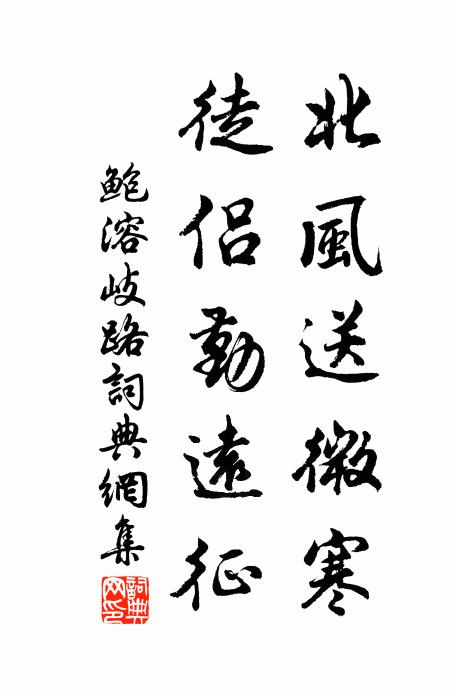 北風送微寒
徒侶勤遠征
鮑溶歧路詞典網集
詞典网印